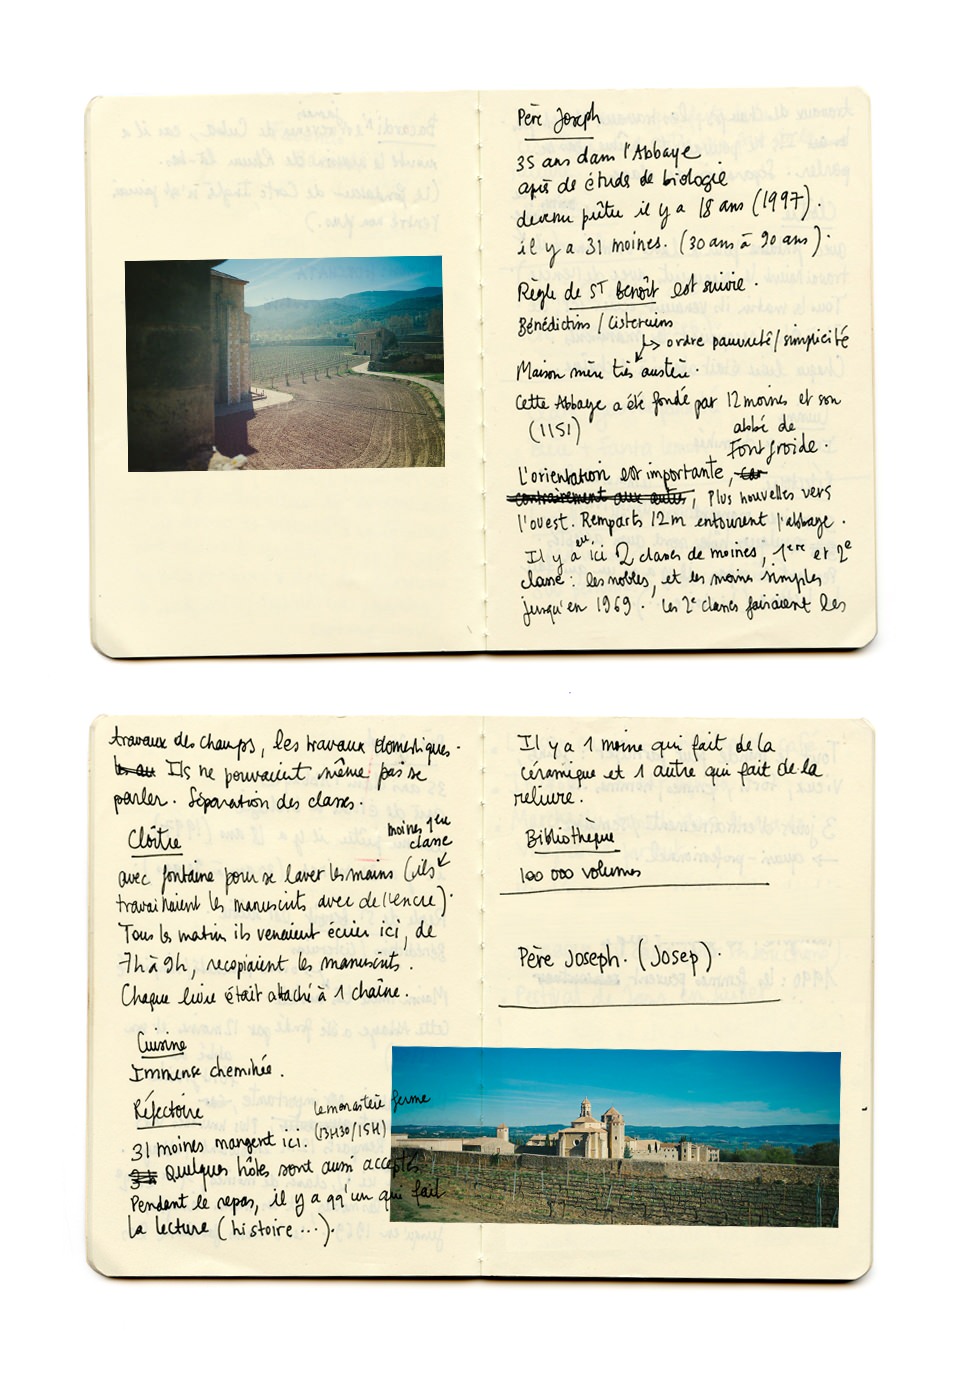 Père Joseph
35 ans dans l'Abbaye
après de étude de biologie
devenu prêtre il y a 18 ans (1997).
il y a 31 moines. (30 ans à 90 ans).
Règle de ST Benoît est suivie.
Bénédictins / Cisterciens
↳ ordre pauvreté/simplicité
Maison mère très austère.
Cette Abbaye a été fondé par 12 moines et son
abbé de
(1151)
Fontfroide.
L'orientation est importante, car
contrairement aux autres, Plus nouvelles vers
l'ouest. Remparts 12m entourent l'abbaye.
Il y a eu ici 2 classes de moines, 1ere et 2e
classe : les nobles, et les moins simples
jusqu'en 1969. Les 2e classes faisaient les
travaux des champs, les travaux domestiques.
Ils ne pouvaient même pas se
parler. Séparation des classes.
Cloître
moines 1ere
classe
avec fontaine pour se laver les mains (ils
travaillaient les manuscrits avec de l'encre).
Tous les matin ils venaient écrier ici, de
7h à 9h, recopiaient les manuscrits.
Chaque livre était attaché à 1 chaîne.
Cuisine
Immense cheminée.
Réfectoire
le monastère ferme
(13H30/15H)
31 moines mangent ici.
Quelques hôtes sont aussi acceptés.
Pendant le repas, il y a qq'un qui fait
la lecture (histoire...).
Il y a 1 moine qui fait de la
céramique et 1 autre qui fait de la
reliure.
Bibliothèque
100 000 volumes
Père Joseph. (Josep).